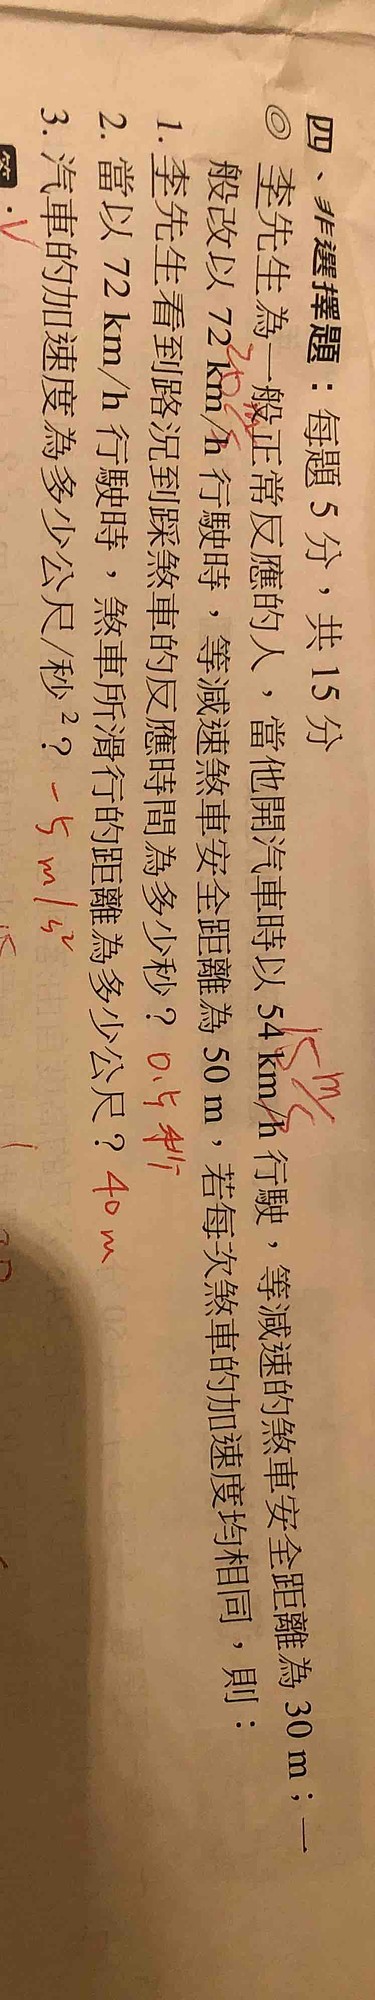 四、非選擇題：每題 5 分，共 15 分
15 m/s
◎ 李先生為一般正常反應的人，當他開汽車時以 54 km/h 行駛，等減速的煞車安全距離為 30 m；一
般改以 72 km/h 行駛時，等減速煞車安全距離為 50 m，若每次煞車的加速度均相同，則：
1. 李先生看到路況到踩煞車的反應時間為多少秒？ 0.5 秒
2. 當以 72 km/h 行駛時，煞車所滑行的距離為多少公尺？ 40 m
3. 汽車的加速度為多少公尺/秒²？ -5 m/s²
答